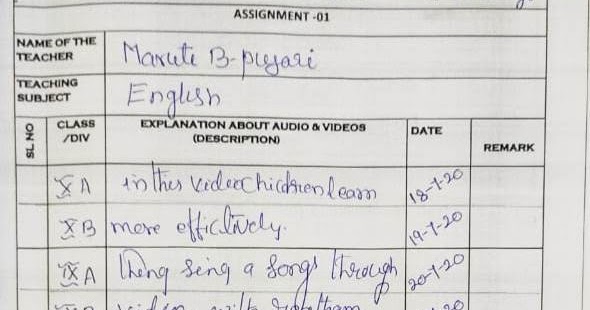 ASSIGNMENT -01
NAME OF THE TEACHER Marute B-pujari
TEACHING SUBJECT English
SL NO CLASS /DIV EXPLANATION ABOUT AUDIO & VIDEOS (DESCRIPTION) DATE REMARK
X A in this video Chicdren learn 18-7-20
X B more effictively. 19-7-20
IX A theng sing a Songs through 20-7-20